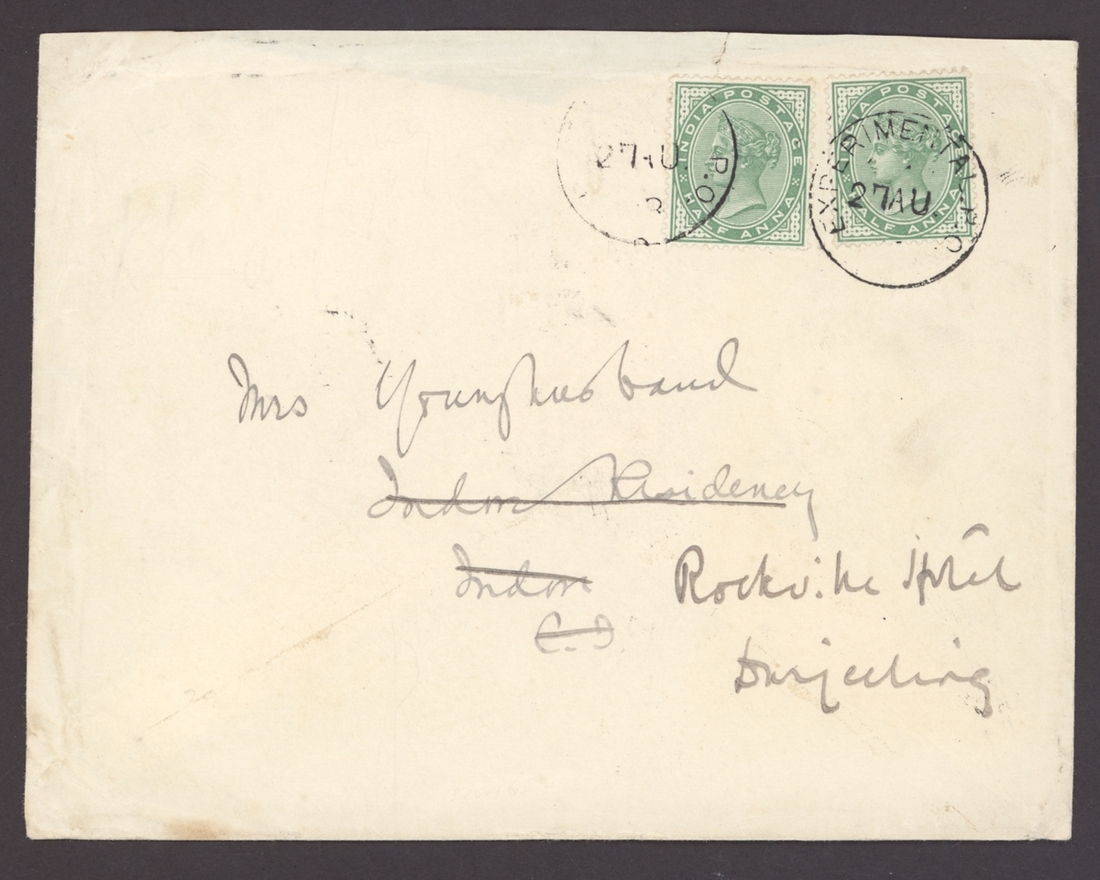 INDIA POSTAGE
HALF ANNA
27 AU
P.O.
INDIA POSTAGE
HALF ANNA
EXPERIMENTAL P.O.
27 AU
Mrs Younghusband
Indore Residency
Indore
C.I.
Rockville Hotel
Darjeeling